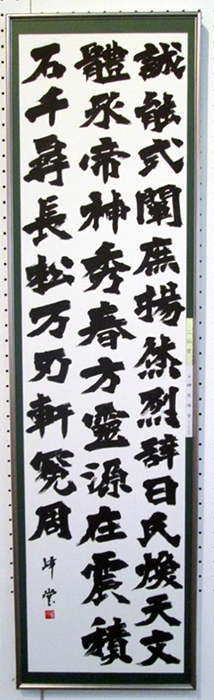 誠能式闡庶揚烋烈辞曰氏煥天文
體承帝神秀春方靈源在震積
石千尋長松万刃軒冕周